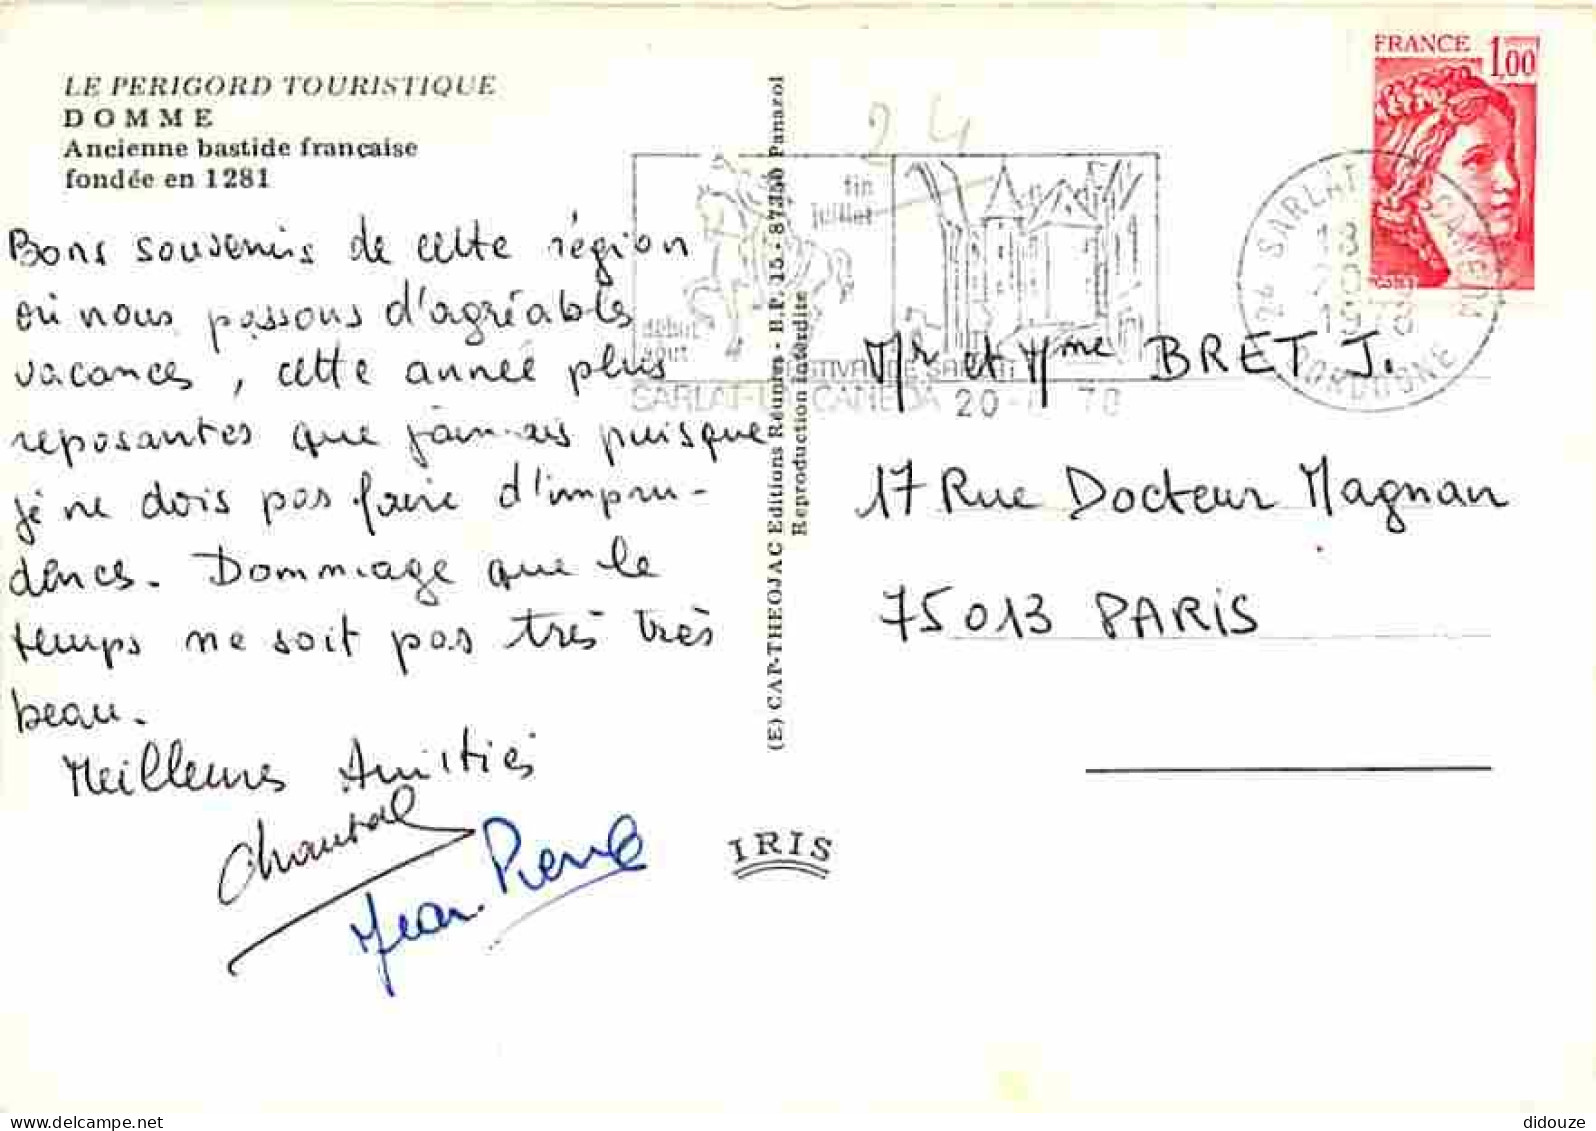 LE PERIGORD TOURISTIQUE
DOMME
Ancienne bastide française
fondée en 1281
Bons souvenirs de cette région
où nous passons d'agréables
vacances, cette année plus
reposantes que jamais puisque
je ne dois pas faire d'impru-
dences. Dommage que le
temps ne soit pas très très
beau.
Meilleures Amitiés
Chantal
Jean-Pierre
(E) CAP-THEOJAC Editions Réunies - B.P. 15 - 87350 Panazol
Reproduction interdite
IRIS
24
fin
juillet
début
août
FESTIVAL DE SARLAT
SARLAT-LA CANEDA
FRANCE 1,00
24 SARLAT LA CANEDA
18
DORDOGNE
Mr et Mme BRET J.
17 Rue Docteur Magnan
75013 PARIS
didouze